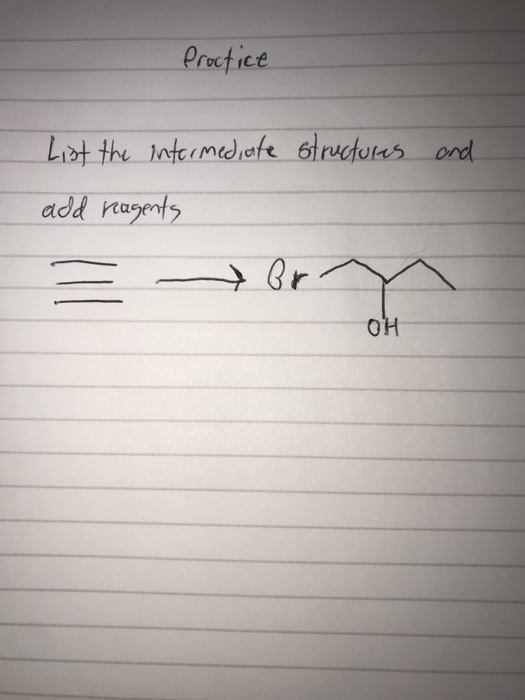 Practice
List the intermediate structures and
add reagents
Br
OH